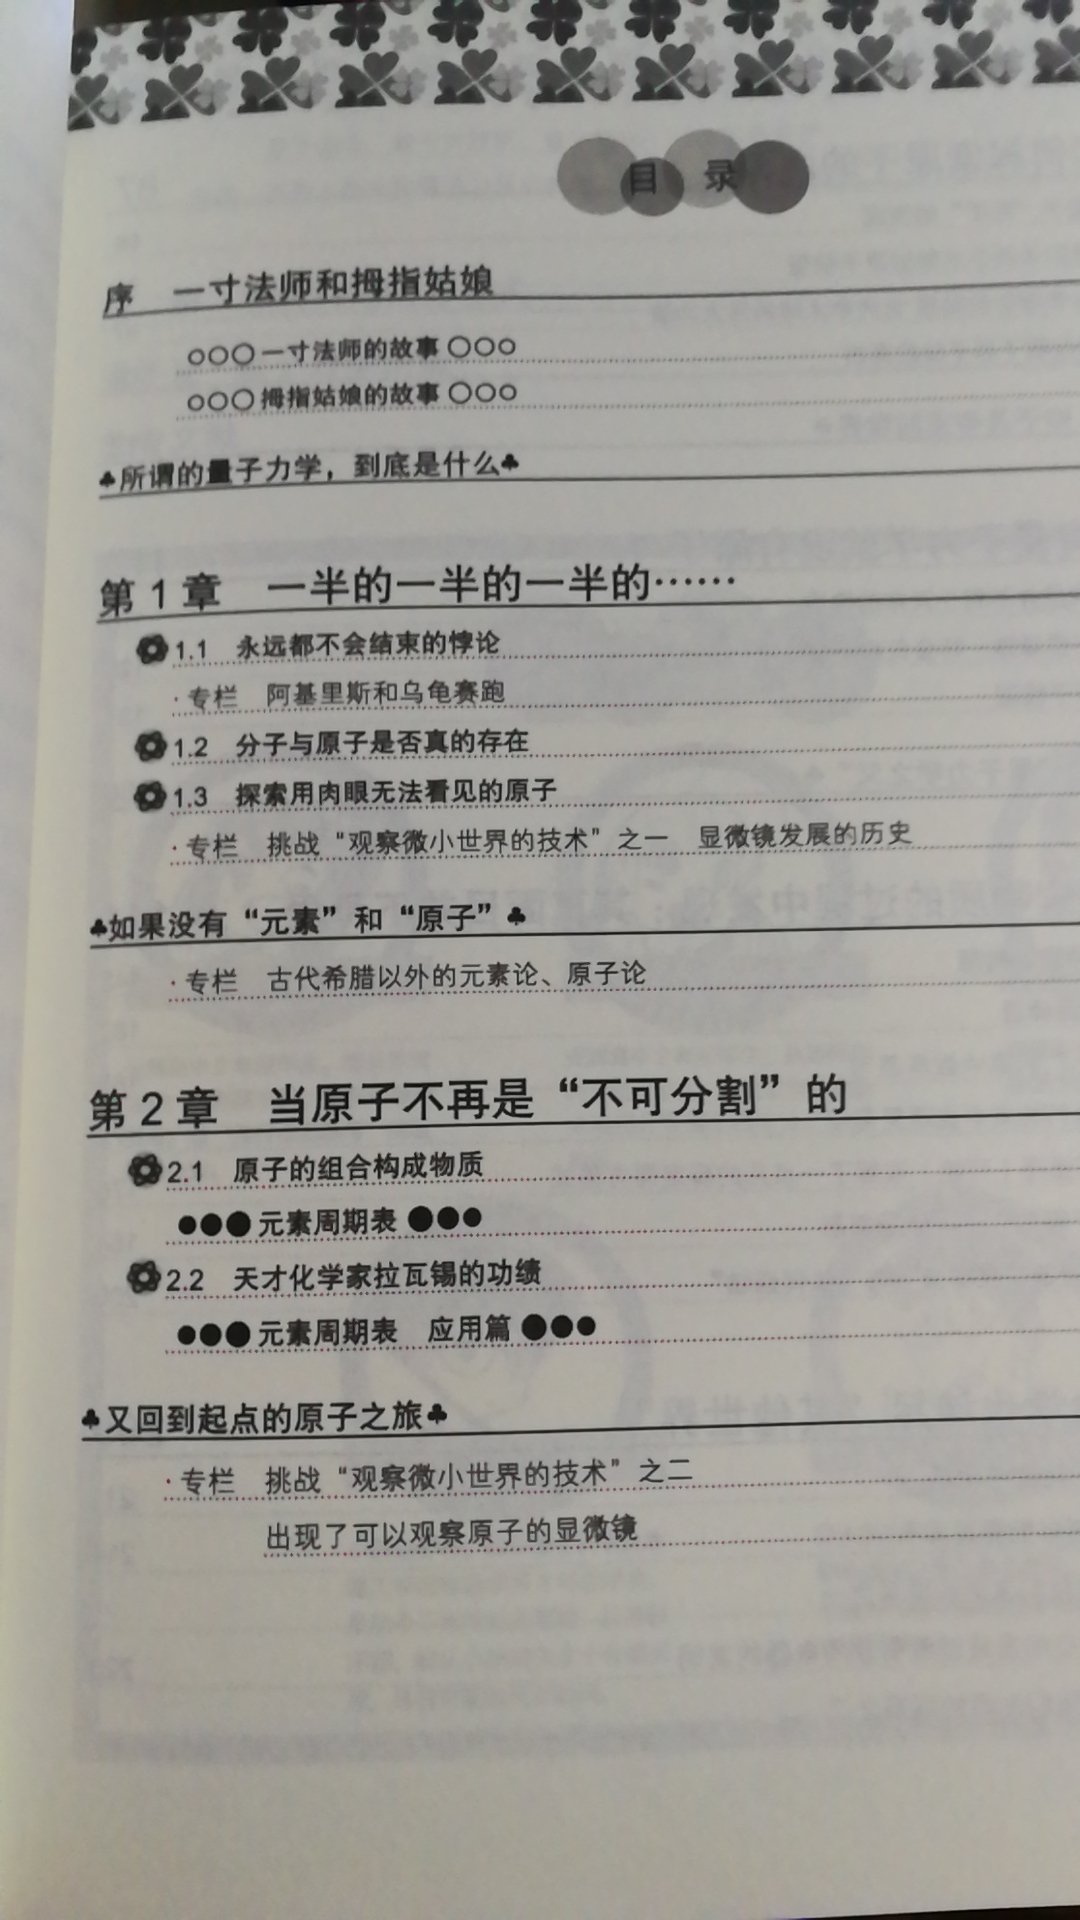 目 录
序 一寸法师和拇指姑娘
○○○一寸法师的故事○○○
○○○拇指姑娘的故事○○○
♣所谓的量子力学，到底是什么♣
第1章 一半的一半的一半的……
1.1 永远都不会结束的悖论
·专栏 阿基里斯和乌龟赛跑
1.2 分子与原子是否真的存在
1.3 探索用肉眼无法看见的原子
·专栏 挑战“观察微小世界的技术”之一 显微镜发展的历史
♣如果没有“元素”和“原子”♣
·专栏 古代希腊以外的元素论、原子论
第2章 当原子不再是“不可分割”的
2.1 原子的组合构成物质
●●●元素周期表●●●
2.2 天才化学家拉瓦锡的功绩
●●●元素周期表 应用篇●●●
♣又回到起点的原子之旅♣
·专栏 挑战“观察微小世界的技术”之二
出现了可以观察原子的显微镜